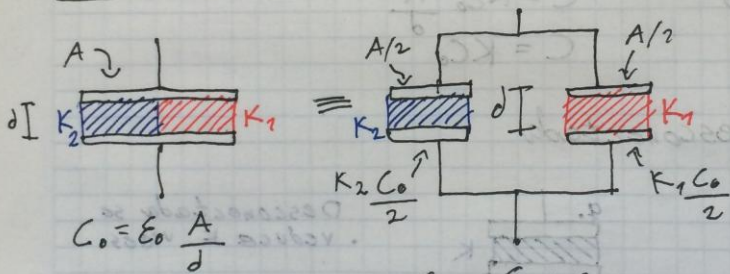 A
d
K₂
K₁
C₀ = ε₀ A/d
≡
A/2
A/2
K₂
d
K₁
K₂ C₀/2
K₁ C₀/2